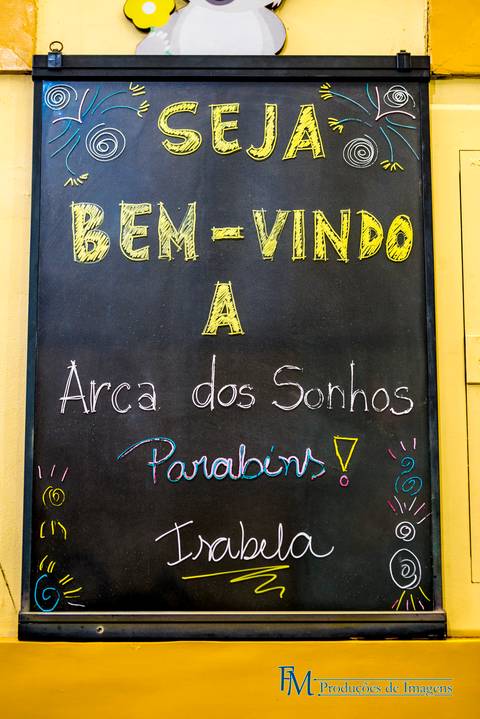 SEJA
BEM-VINDO
A
Arca dos Sonhos
Parabéns!
Isabela
FM Produções de Imagens